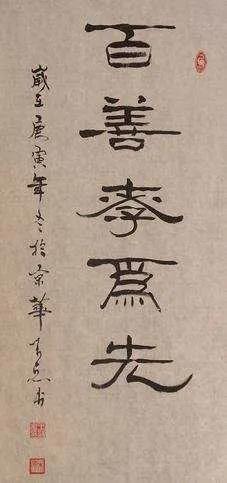 百善孝為先
歲在庚寅年冬於京華